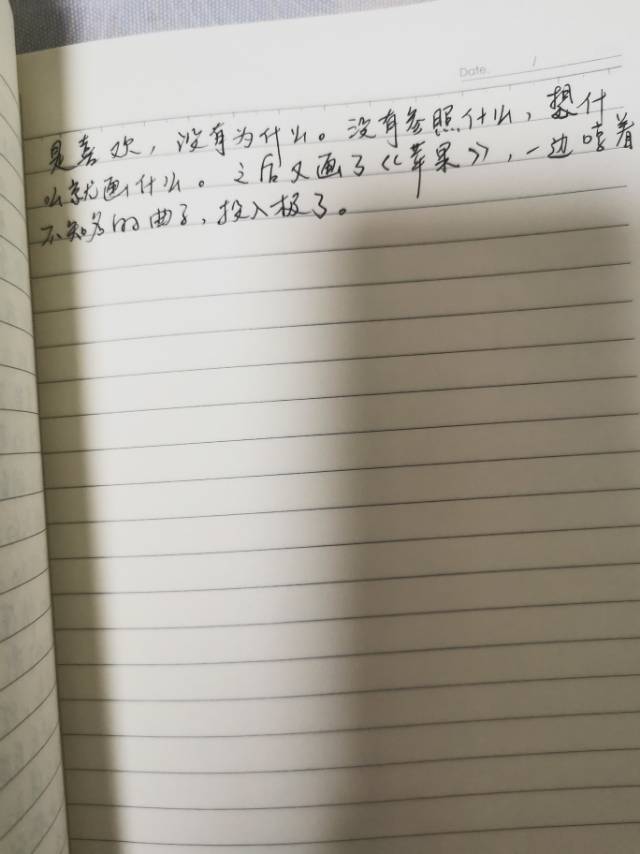 Date. /
是喜欢，没有为什么。没有参照什么，想什
么就画什么。之后又画了《苹果》，一边哼着
不知名的曲子，投入极了。